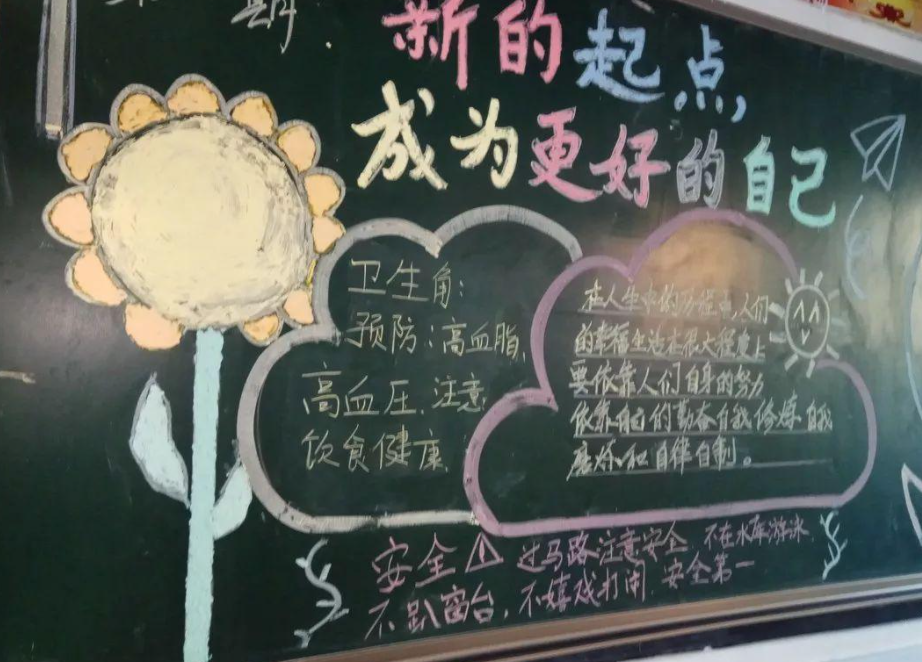 期.
新的起点,
成为更好的自己
卫生角:
预防:高血脂、
高血压、注意
饮食健康
在人生中的历程里,人们
的幸福生活在很大程度上
要依靠人们自身的努力
依靠自己的勤奋自我修炼自我
磨炼和自律自制。
安全 过马路注意安全 不在水库游泳
不趴窗台, 不嬉戏打闹 安全第一